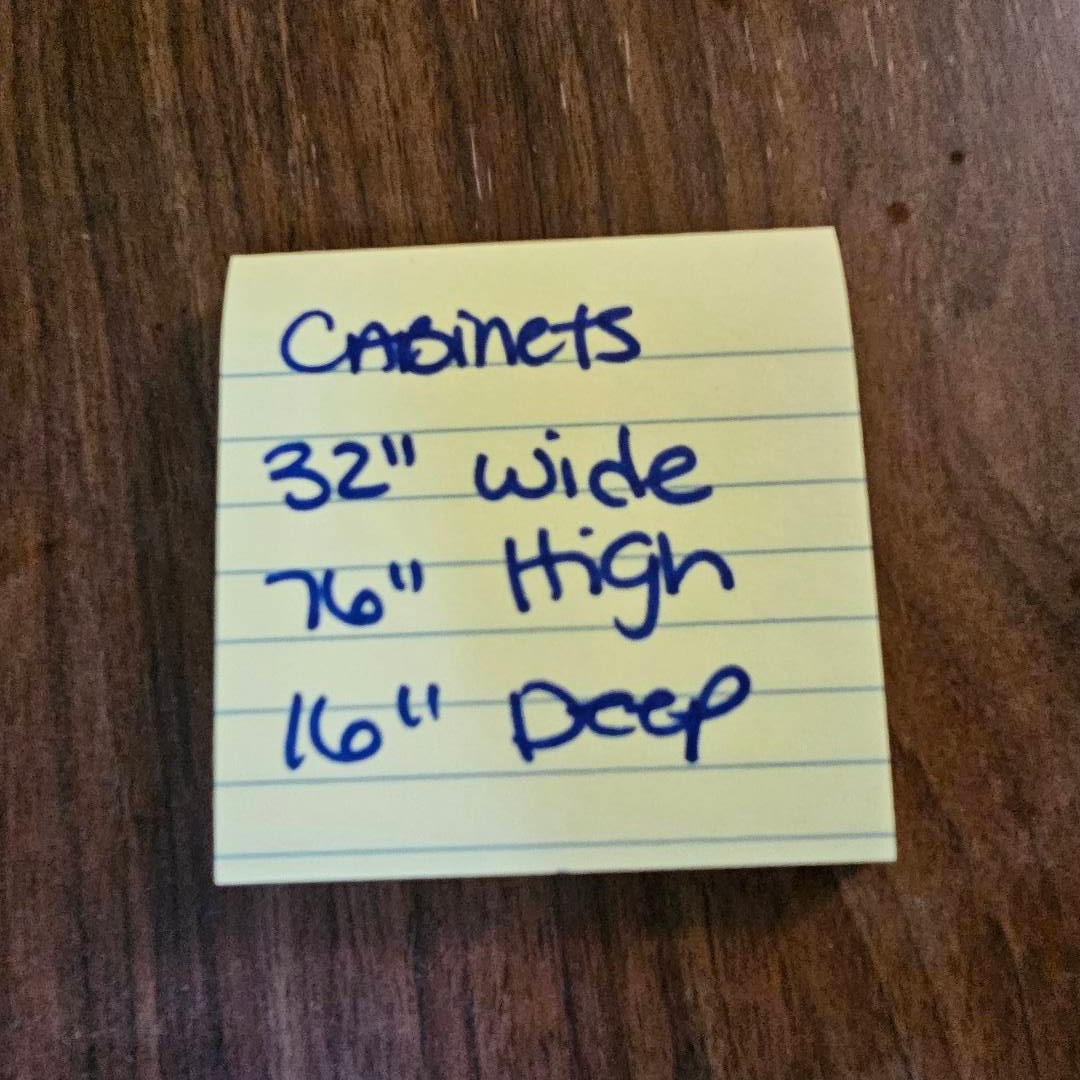 CABinets
32" wide
76" High
16" Deep